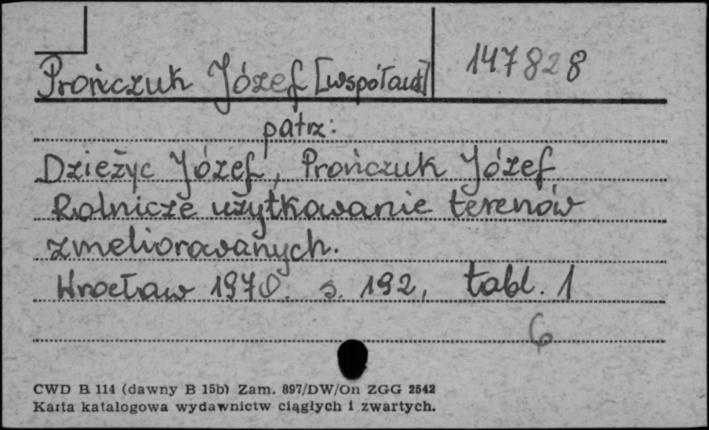 Prończuk Józef [współaut] 147828
patrz:
Dzieżyc Józef, Prończuk Józef
Rolnicze użytkowanie terenów
zmeliorowanych.
Wrocław 1970. s. 192, tabl. 1
6
CWD B 114 (dawny B 15b) Zam. 897/DW/On ZGG 2542
Karta katalogowa wydawnictw ciągłych i zwartych.